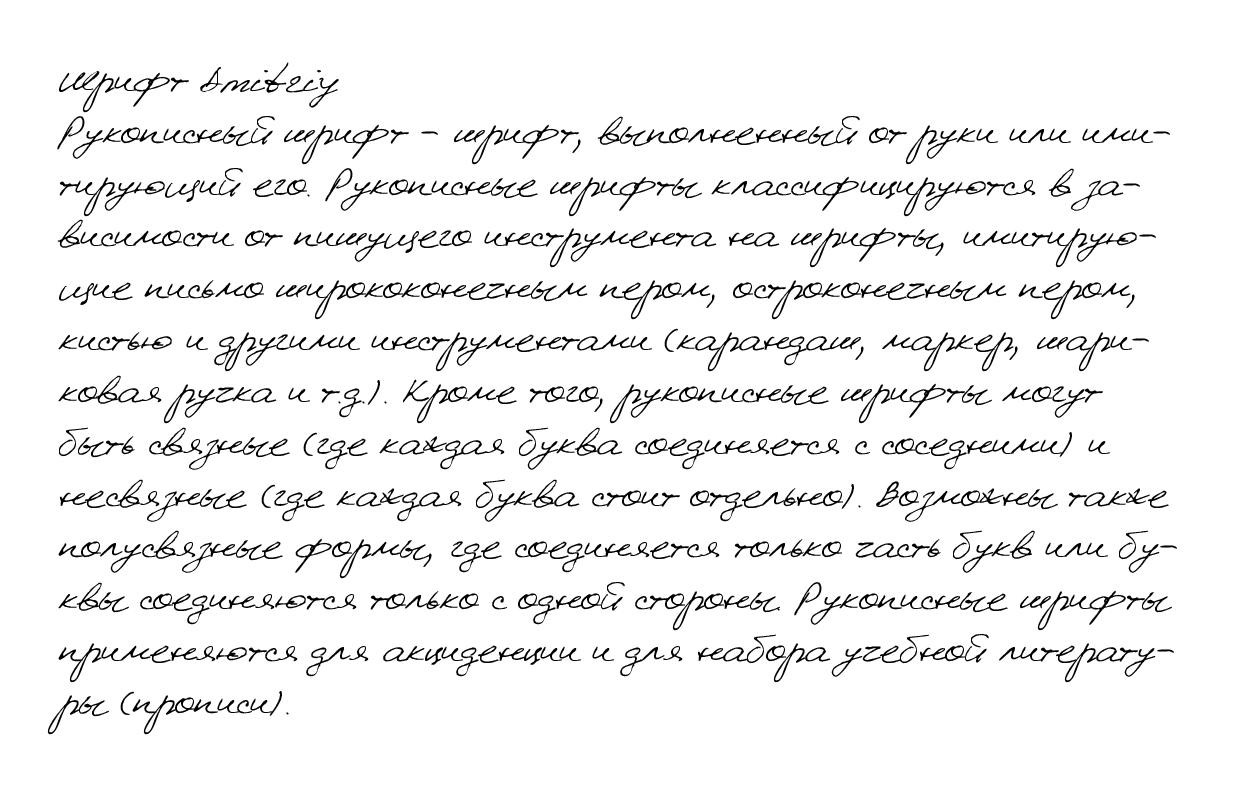 Шрифт Dmitriy
Рукописный шрифт – шрифт, выполненный от руки или ими-
тирующий его. Рукописные шрифты классифицируются в за-
висимости от пишущего инструмента на шрифты, имитирую-
щие письмо ширококонечным пером, остроконечным пером,
кистью и другими инструментами (карандаш, маркер, шари-
ковая ручка и т.д.). Кроме того, рукописные шрифты могут
быть связные (где каждая буква соединяется с соседними) и
несвязные (где каждая буква стоит отдельно). Возможны также
полусвязные формы, где соединяется только часть букв или бу-
квы соединяются только с одной стороны. Рукописные шрифты
применяются для акциденции и для набора учебной литерату-
ры (прописи).